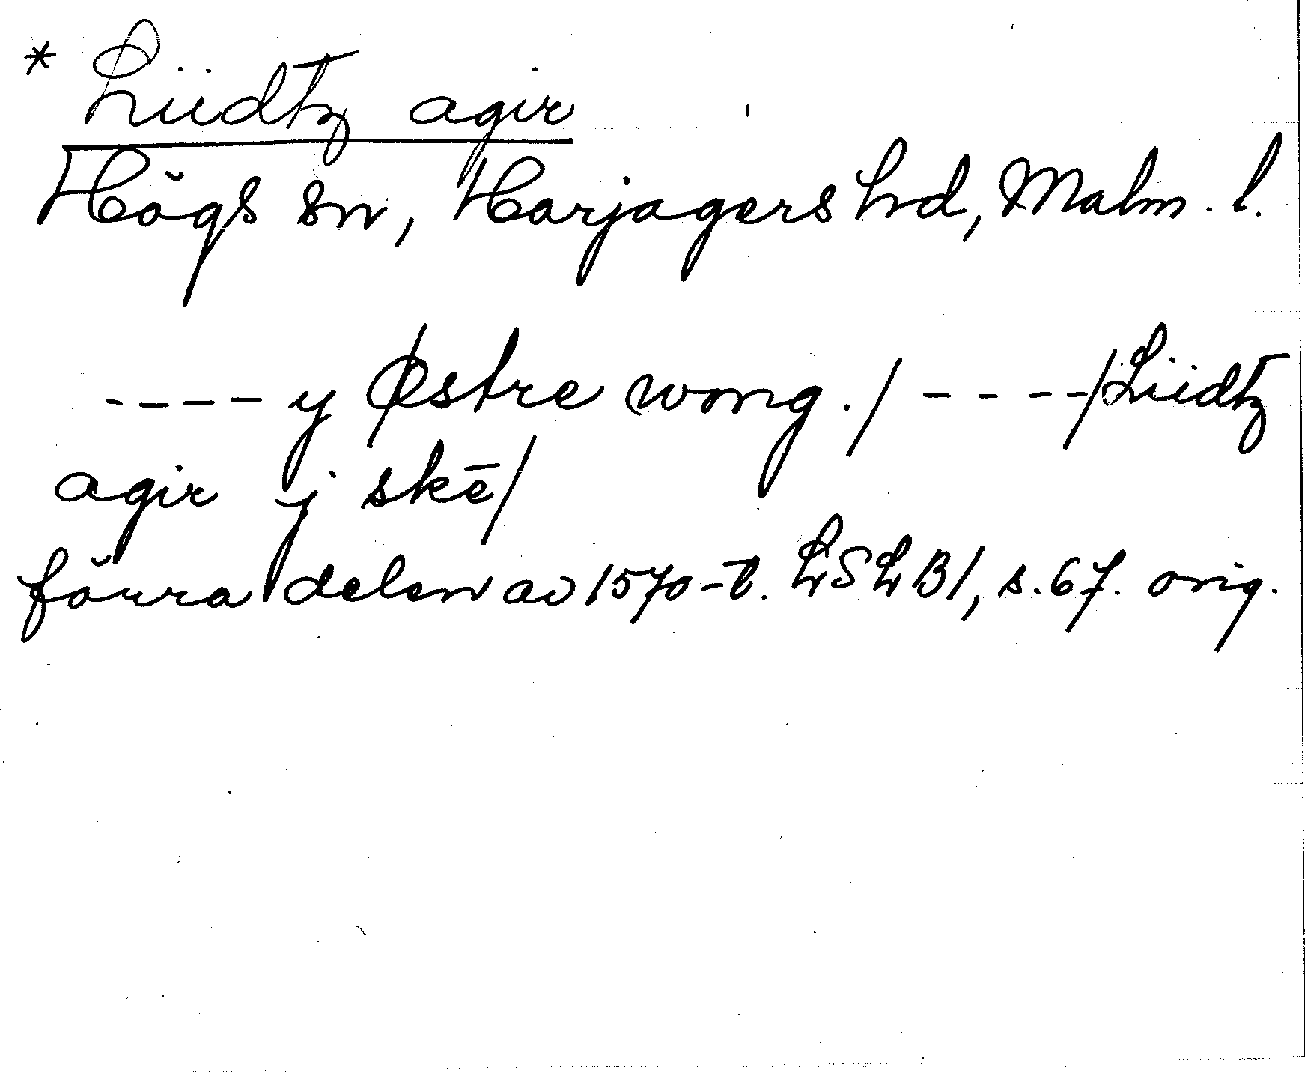 * Liidtz agir
Högs sn, Harjagers hd, Malm. l.
---- y Østre wong. / ----/Liidtz
agir j skē/
förra delen av 1570-t. LSLB1, s. 67. orig.